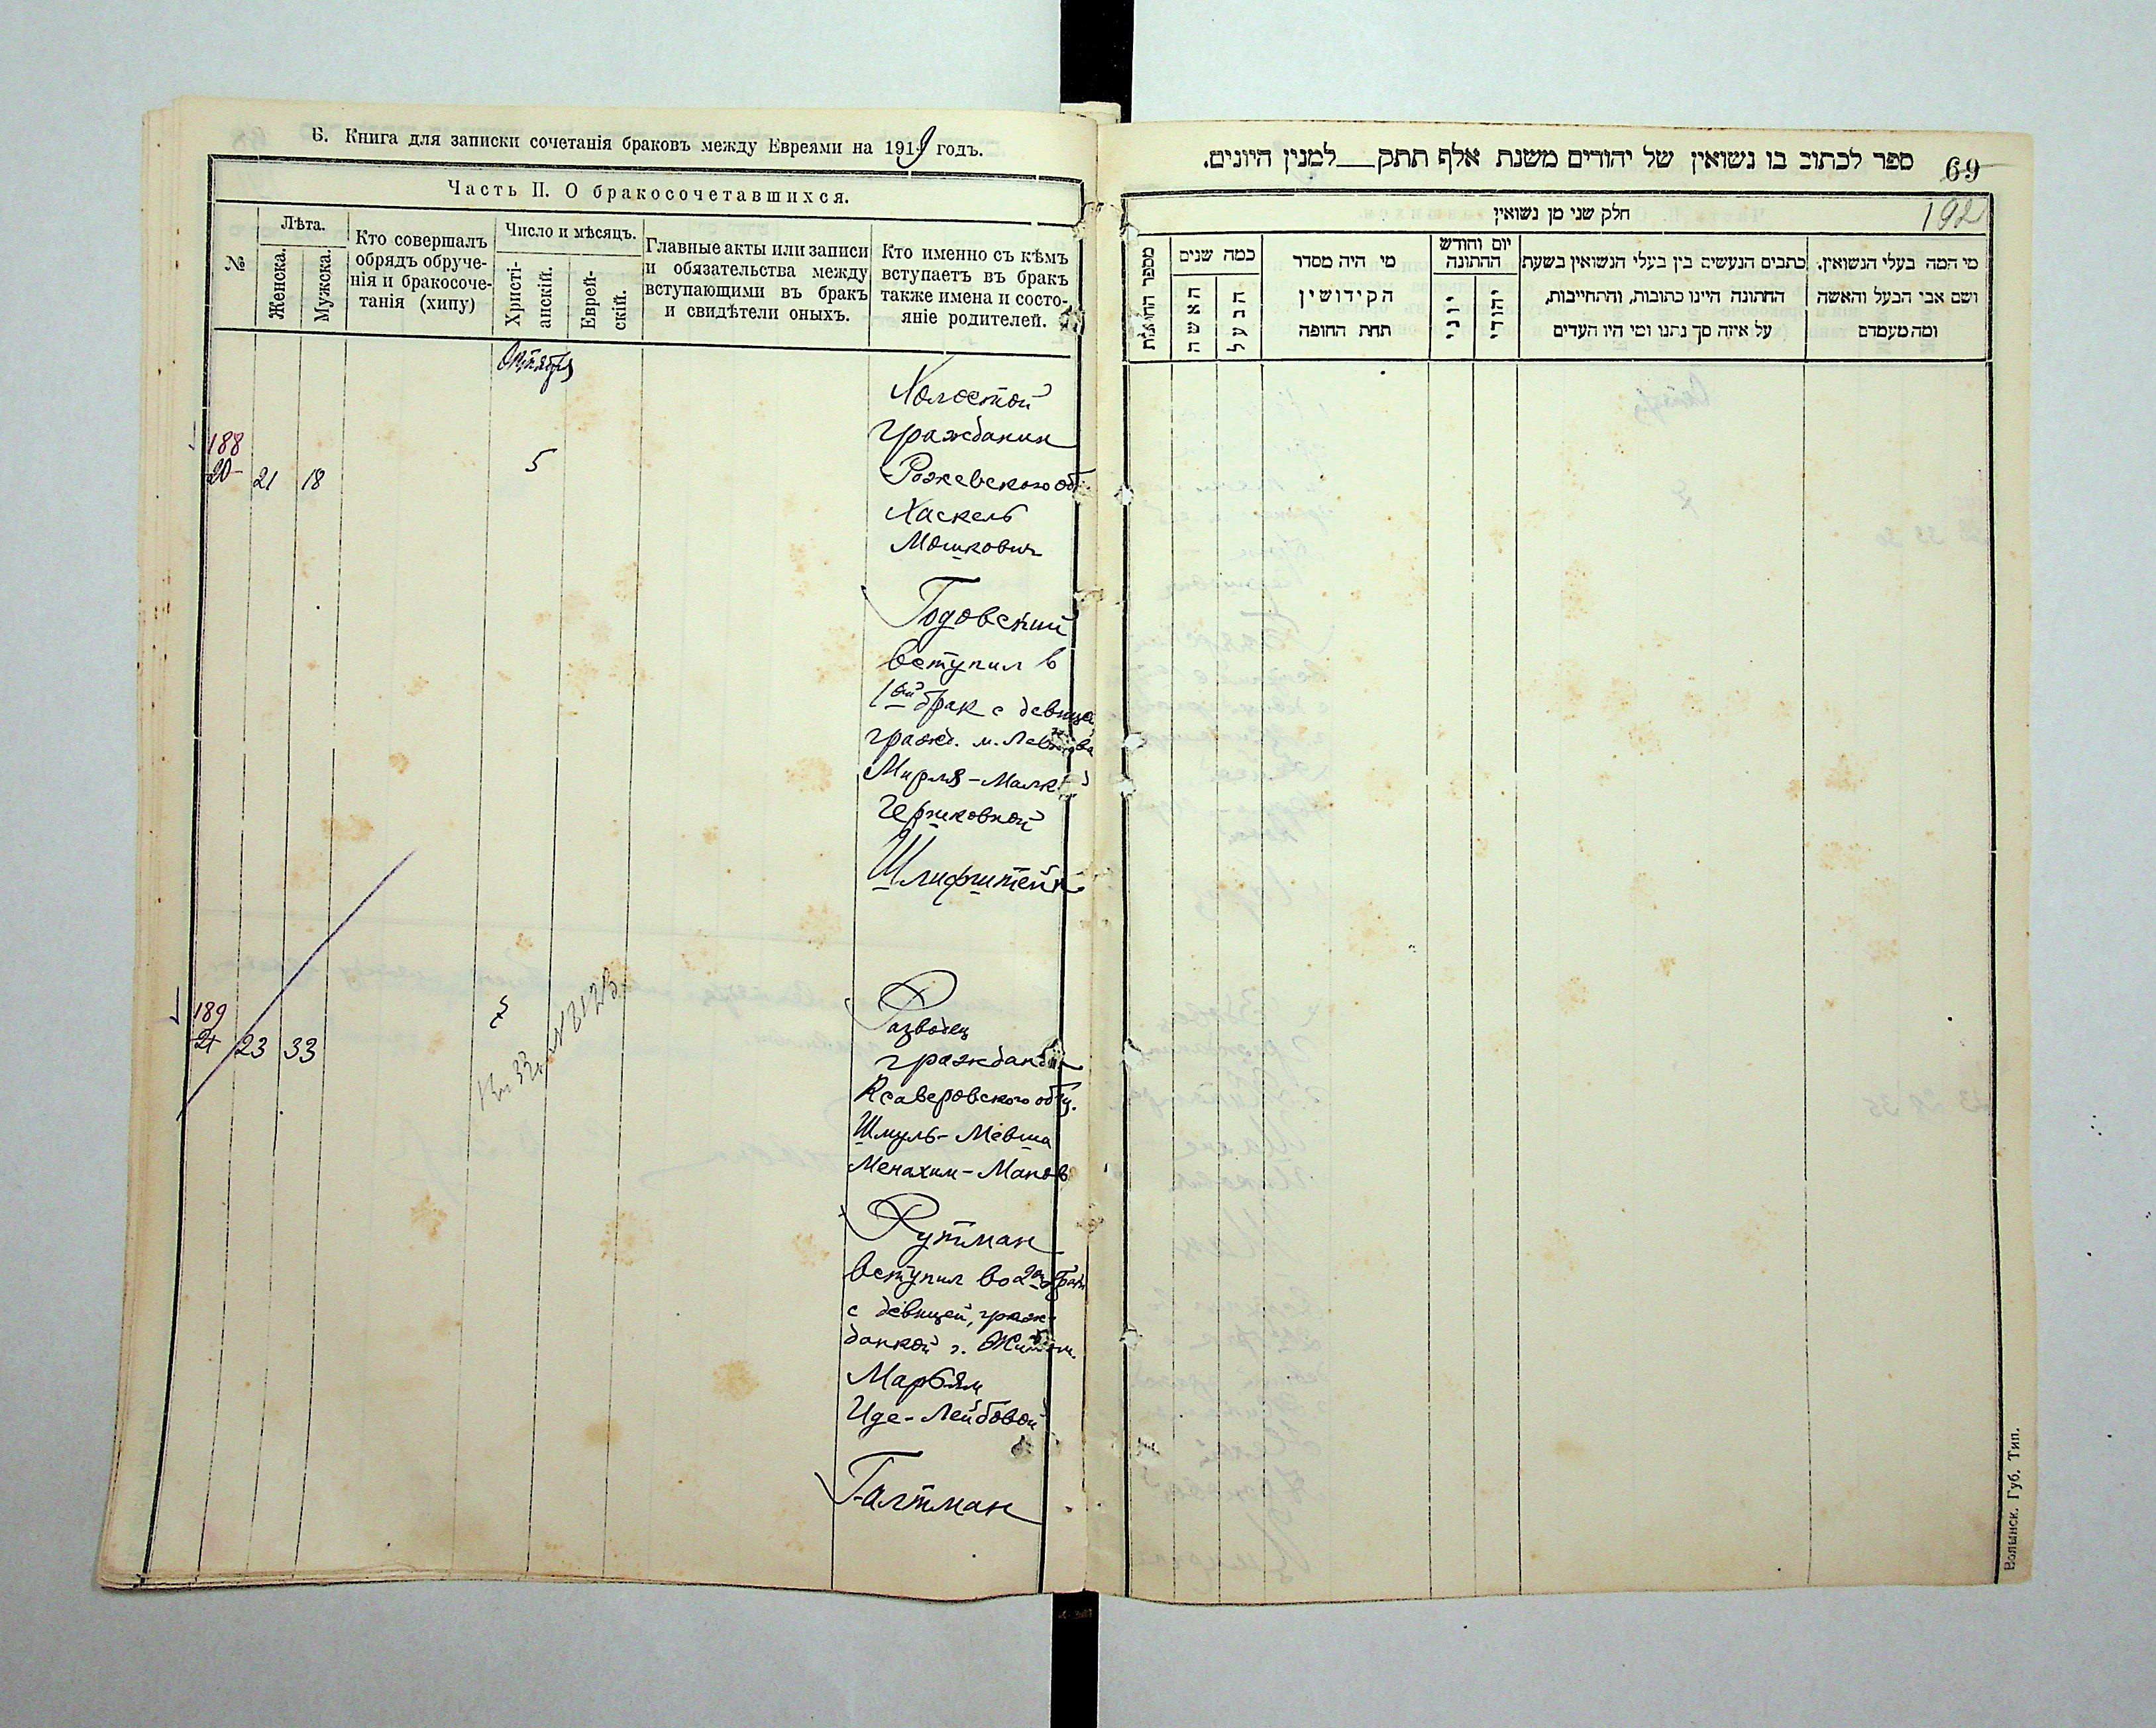 Б. Книга для записки сочетанія браковъ между Евреями на 1919 годъ.
Часть II. О бракосочетавшихся.
№
Лѣта.
Женска.
Мужска.
Кто совершалъ
обрядъ обруче-
нія и бракосоче-
танія (хипу)
Число и мѣсяцъ.
Христі-
анскій.
Еврей-
скій.
Главные акты или записи
и обязательства между
вступающими въ бракъ
и свидѣтели оныхъ.
Кто именно съ кѣмъ
вступаетъ въ бракъ
также имена и состо-
яніе родителей.
Октября
188
20 21 18
5
Холостой
гражданин
Рожевского об.
Хаскель
Мошкович
Годовский
вступил в
1ой брак с девицей
гражд. м.
Мирля-Малк
Гершковной
Шлифштейн
189
21 23 33
Разводец
гражданин
Ксаверовского общ.
Шмуль-Мевша
Менахим-Манов
Рутман
вступил во 2ой брак
с девицей, граж-
данкой г. Житом.
Марьям
Иде-Лейбовой
Галтман
ספר לכתוב בו נשואין של יהודים משנת אלף תתק__למנין היונים.
69
192
חלק שני מן נשואין
מספר החופות
כמה שנים
האשה
הבעל
מי היה מסדר
הקידושין
תחת החופה
יום וחודש
החתונה
יוני
יהודי
כתבים הנעשים בין בעלי הנשואין בשעת
החתונה היינו כתובות, והתחייבות,
על איזה סך נתנו ומי היו העדים
מי המה בעלי הנשואין.
ושם אבי הבעל והאשה
ומה מעמדם
Волынск. Губ. Тип.